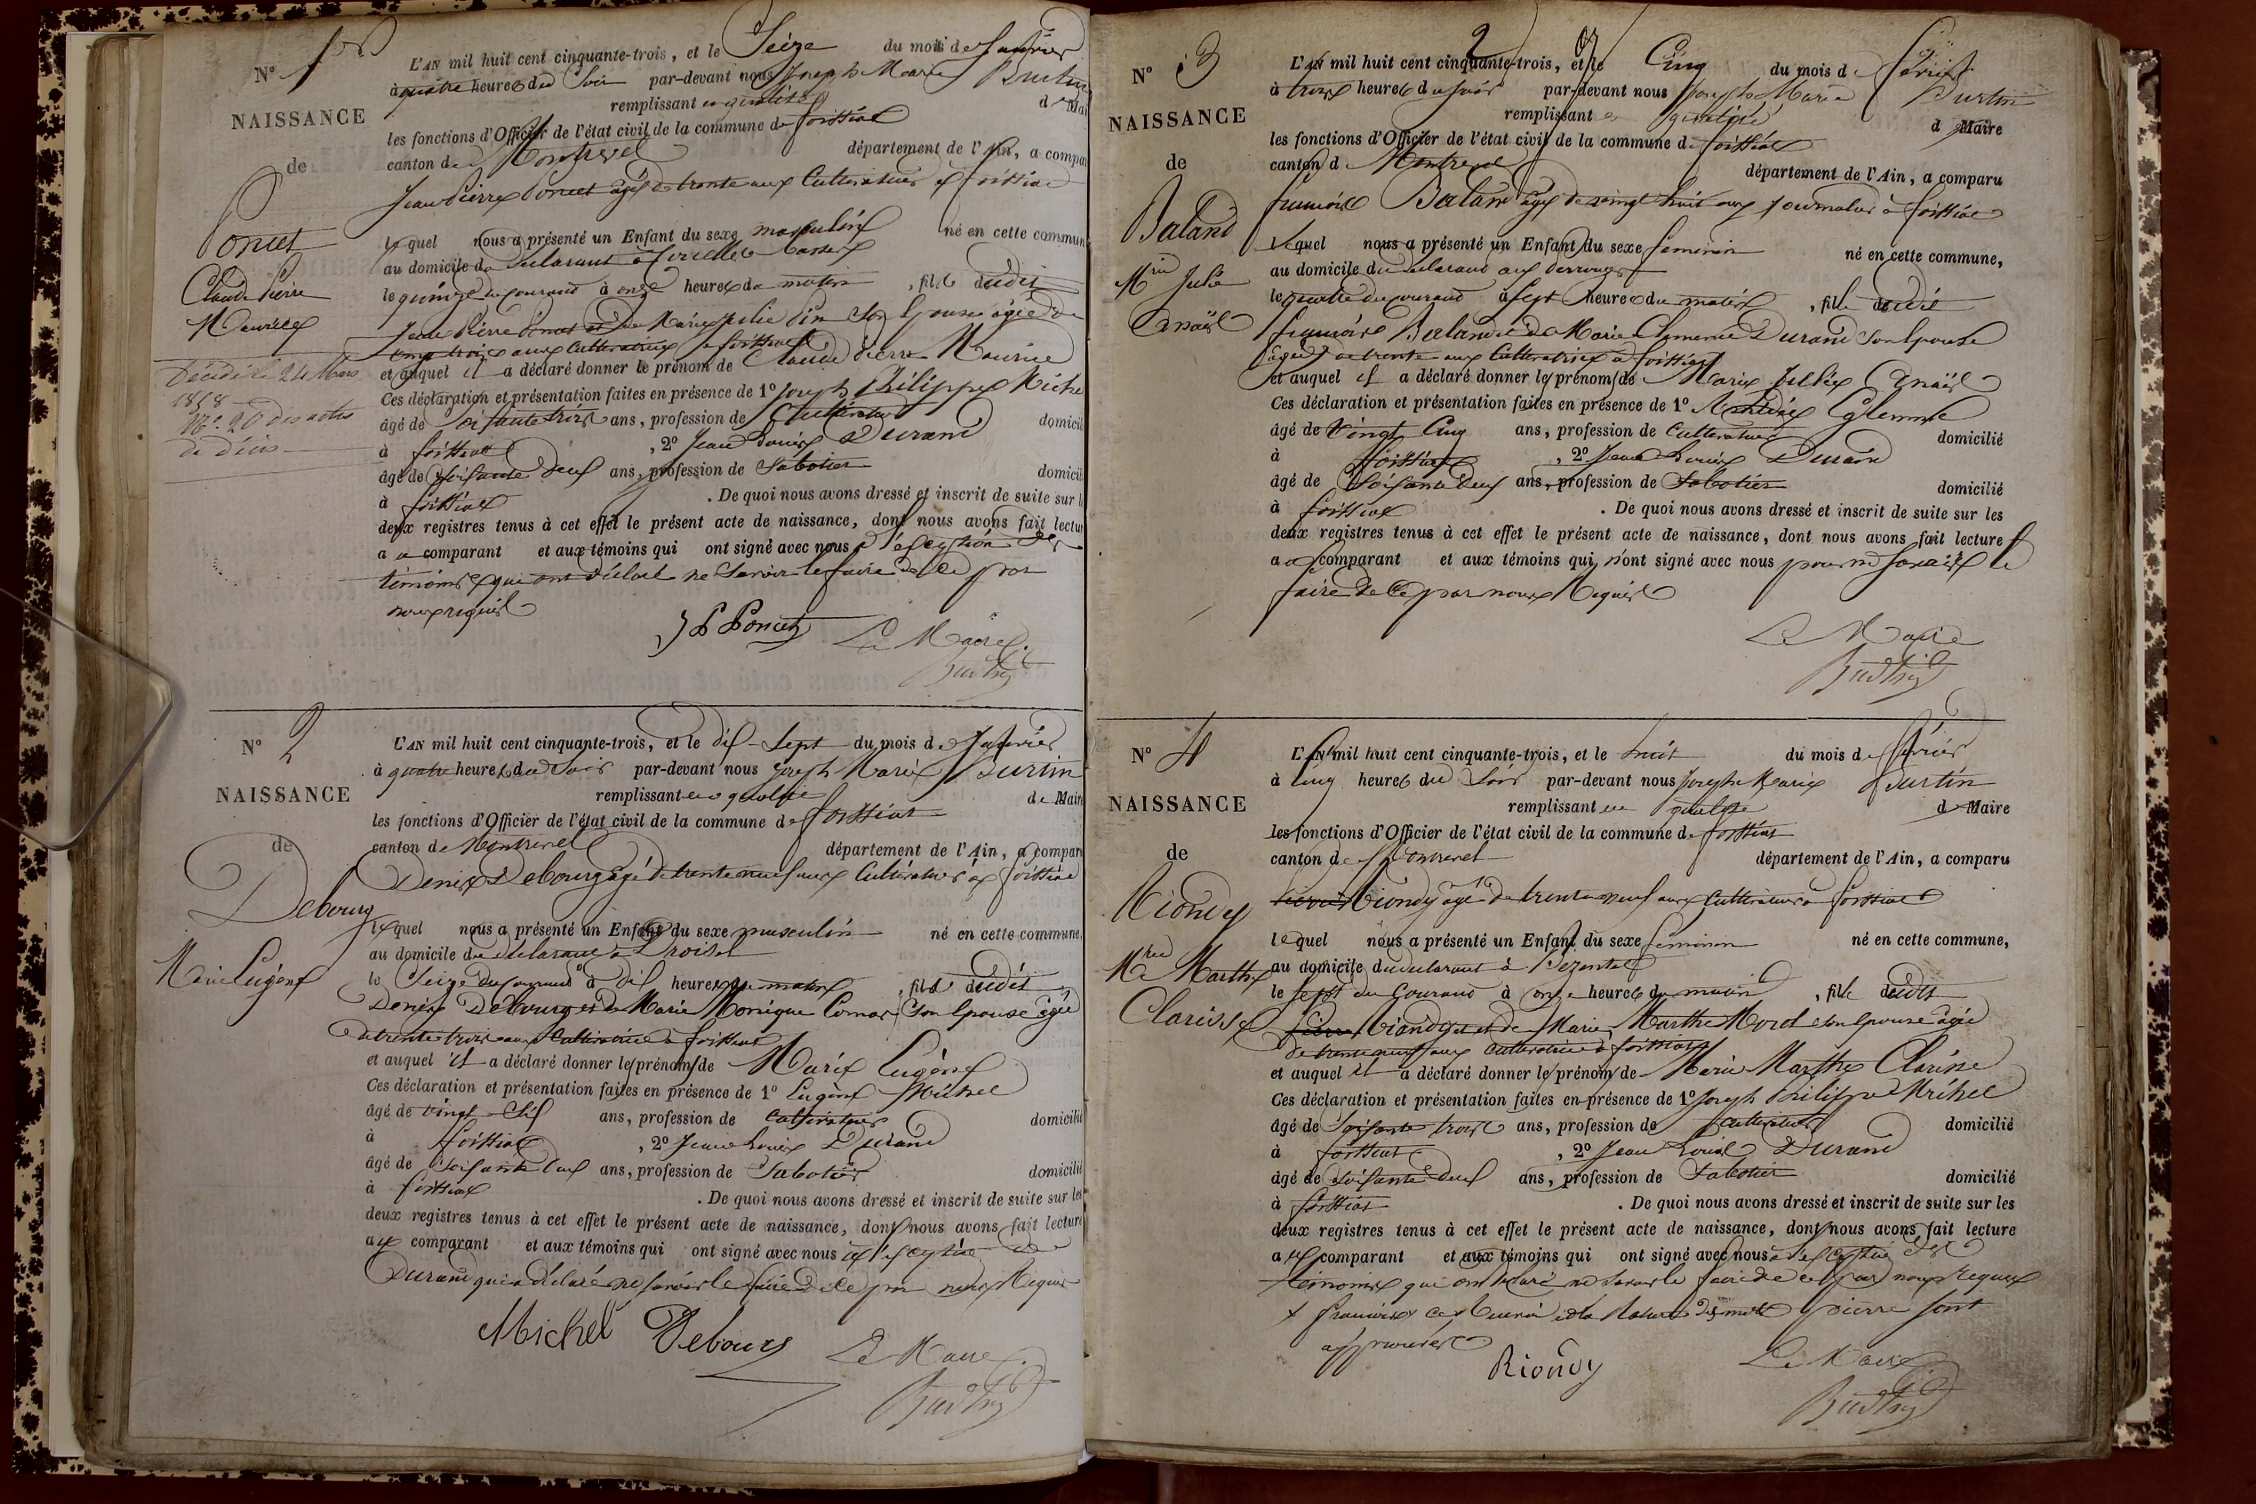 N° 1er
NAISSANCE
de
Poncet
Claude Pierre
Maurice
Décédé le 24 Mars
1858
N° 20 des actes
de décès
L'AN mil huit cent cinquante-trois, et le Seize du mois de Janvier
à quatre heures du Soir par-devant nous Joseph Marie Burtin
remplissant en qualité de Mai
les fonctions d'Officier de l'état civil de la commune de foissiat
canton de Montrevel département de l'Ain, a compa
Jean Pierre Poncet âgé de trente ans Cultivateur à foissiat
lequel nous a présenté un Enfant du sexe masculin né en cette commun
au domicile du déclarant à
le quinze du courant à onze heures du matin, fils dudit
Jean Pierre Poncet et de Marie son Epouse âgée de
trois ans Cultivatrice à foissiat
et auquel il a déclaré donner le prénom de Claude Pierre Maurice
Ces déclaration et présentation faites en présence de 1° Joseph Philippe Miche
âgé de Soixante trois ans, profession de Cultivateur domicili
à foissiat, 2° Jean Louis Durand
âgé de Soixante deux ans, profession de Sabotier domicili
à foissiat. De quoi nous avons dressé et inscrit de suite sur l
deux registres tenus à cet effet le présent acte de naissance, dont nous avons fait lectur
au comparant et aux témoins qui ont signé avec nous à l'exception des
témoins qui ont déclaré ne savoir le faire de ce par
nous requis
JP Poncet Le Maire
Burtin
N° 2
NAISSANCE
de
Debourg
Marie Eugène
L'AN mil huit cent cinquante-trois, et le dix-Sept du mois de Janvier
à quatre heures du Soir par-devant nous Joseph Marie Burtin
remplissant en qualité de Maire
les fonctions d'Officier de l'état civil de la commune de foissiat
canton de Montrevel département de l'Ain, a compar
Denis Debourg âgé de trente neuf ans Cultivateur à foissiat
lequel nous a présenté un Enfant du sexe masculin né en cette commune,
au domicile du déclarant à
le Seize du courant à dix heures du matin, fils dudit
Denis Debourg et de Marie Monique son Epouse âgée
de trente trois ans Cultivatrice à foissiat
et auquel il a déclaré donner le prénom de Marie Eugène
Ces déclaration et présentation faites en présence de 1° Eugène Michel
âgé de vingt six ans, profession de Cultivateur domicilié
à foissiat, 2° Jean Louis Durand
âgé de Soixante deux ans, profession de Sabotier domicilié
à foissiat. De quoi nous avons dressé et inscrit de suite sur les
deux registres tenus à cet effet le présent acte de naissance, dont nous avons fait lecture
au comparant et aux témoins qui ont signé avec nous à l'exception de
Durand qui a déclaré ne savoir le faire de ce par nous Requis
Michel Debourg Le Maire
Burtin
2
N° 3
NAISSANCE
de
Baland
Mrie Julie
Anaïs
L'AN mil huit cent cinquante-trois, et le Cinq du mois de février
à trois heures du soir par-devant nous Joseph Marie Burtin
remplissant en qualité de Maire
les fonctions d'Officier de l'état civil de la commune de foissiat
canton de Montrevel département de l'Ain, a comparu
françois Baland âgé de vingt huit ans journalier à foissiat
lequel nous a présenté un Enfant du sexe feminin né en cette commune,
au domicile du déclarant aux
le quatre du courant à Sept heures du matin, fille dudit
françois Baland et de Marie Clemence Durand Son Epouse
âgée de trente ans Cultivatrice à foissiat
et auquel il a déclaré donner le prénom de Marie Julie Anaïs
Ces déclaration et présentation faites en présence de 1°
âgé de Vingt Cinq ans, profession de Cultivateur domicilié
à foissiat, 2° Jean Louis Durand
âgé de Soixante deux ans, profession de Sabotier domicilié
à foissiat. De quoi nous avons dressé et inscrit de suite sur les
deux registres tenus à cet effet le présent acte de naissance, dont nous avons fait lecture
au comparant et aux témoins qui n'ont signé avec nous pour ne savoir le
faire de ce par nous Requis
Le Maire
Burtin
N° 4
NAISSANCE
de
Riondy
Mrie Marthe
Clarisse
L'AN mil huit cent cinquante-trois, et le huit du mois de février
à Cinq heures du Soir par-devant nous Joseph Marie Burtin
remplissant en qualité de Maire
les fonctions d'Officier de l'état civil de la commune de foissiat
canton de Montrevel département de l'Ain, a comparu
Pierre Riondy âgé de trente neuf ans Cultivateur à foissiat
lequel nous a présenté un Enfant du sexe feminin né en cette commune,
au domicile du déclarant à
le Sept du Courant à onze heures du matin, fille dudit
Pierre Riondy et de Marie Marthe Morel son Epouse âgée
de trente ans Cultivatrice à foissiat
et auquel il a déclaré donner le prénom de Marie Marthe Clarisse
Ces déclaration et présentation faites en présence de 1° Joseph Philippe Michel
âgé de Soixante trois ans, profession de Cultivateur domicilié
à foissiat, 2° Jean Louis Durand
âgé de Soixante deux ans, profession de Sabotier domicilié
à foissiat. De quoi nous avons dressé et inscrit de suite sur les
deux registres tenus à cet effet le présent acte de naissance, dont nous avons fait lecture
au comparant et aux témoins qui ont signé avec nous à l'exception des
témoins qui ont déclaré ne savoir le faire de ce par nous requis
françois ce Renvoi et la Rature des mots pierre sont
approuvés
Riondy Le Maire
Burtin